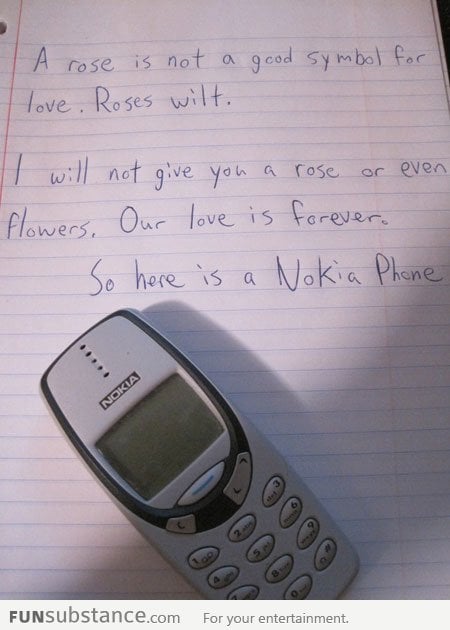 A rose is not a good symbol for
love. Roses wilt.
I will not give you a rose or even
flowers. Our love is forever.
So here is a Nokia Phone
NOKIA
FUNsubstance.com For your entertainment.